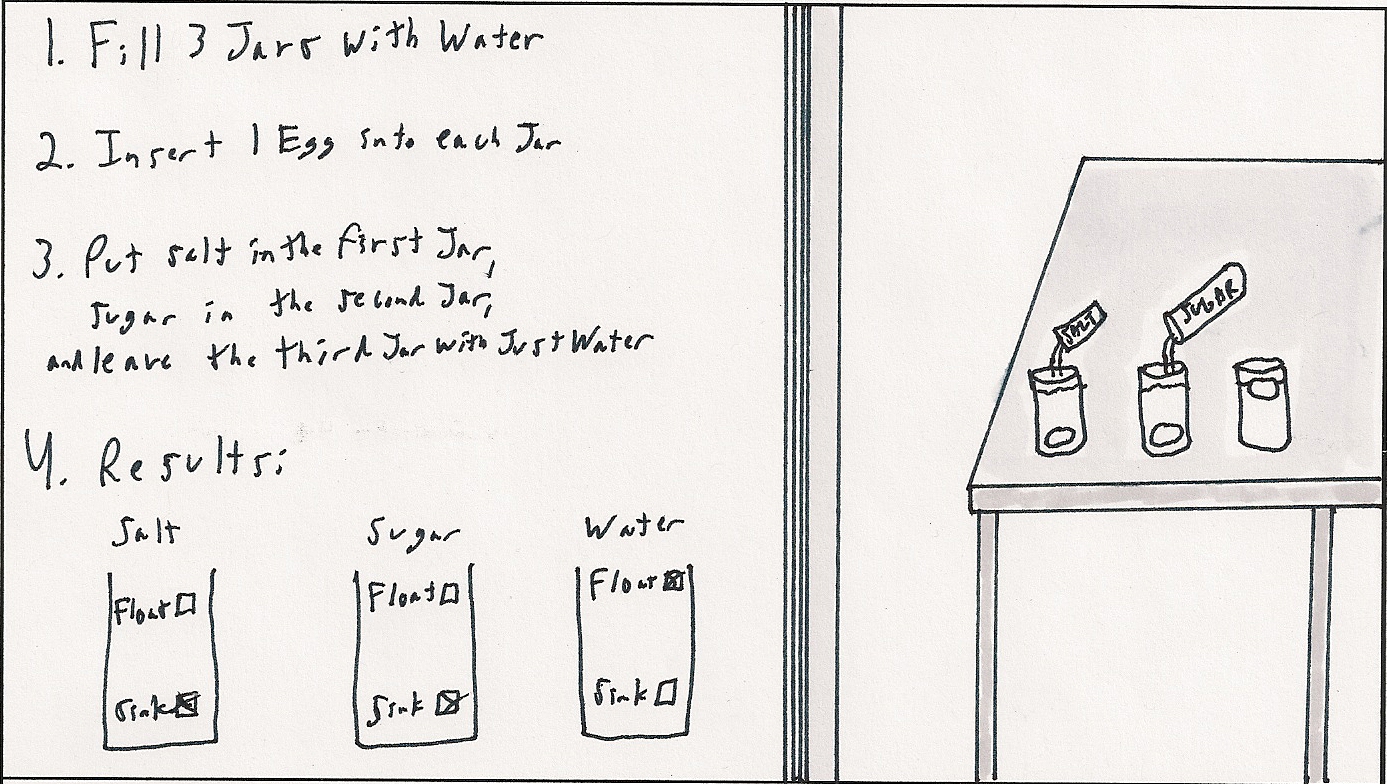 1. Fill 3 Jars with Water
2. Insert 1 Egg into each Jar
3. Put salt in the first Jar,
sugar in the second Jar,
and leave the third Jar with Just Water
4. Results:
Salt Sugar Water
Float Float Float
Sink Sink Sink
SALT
SUGAR